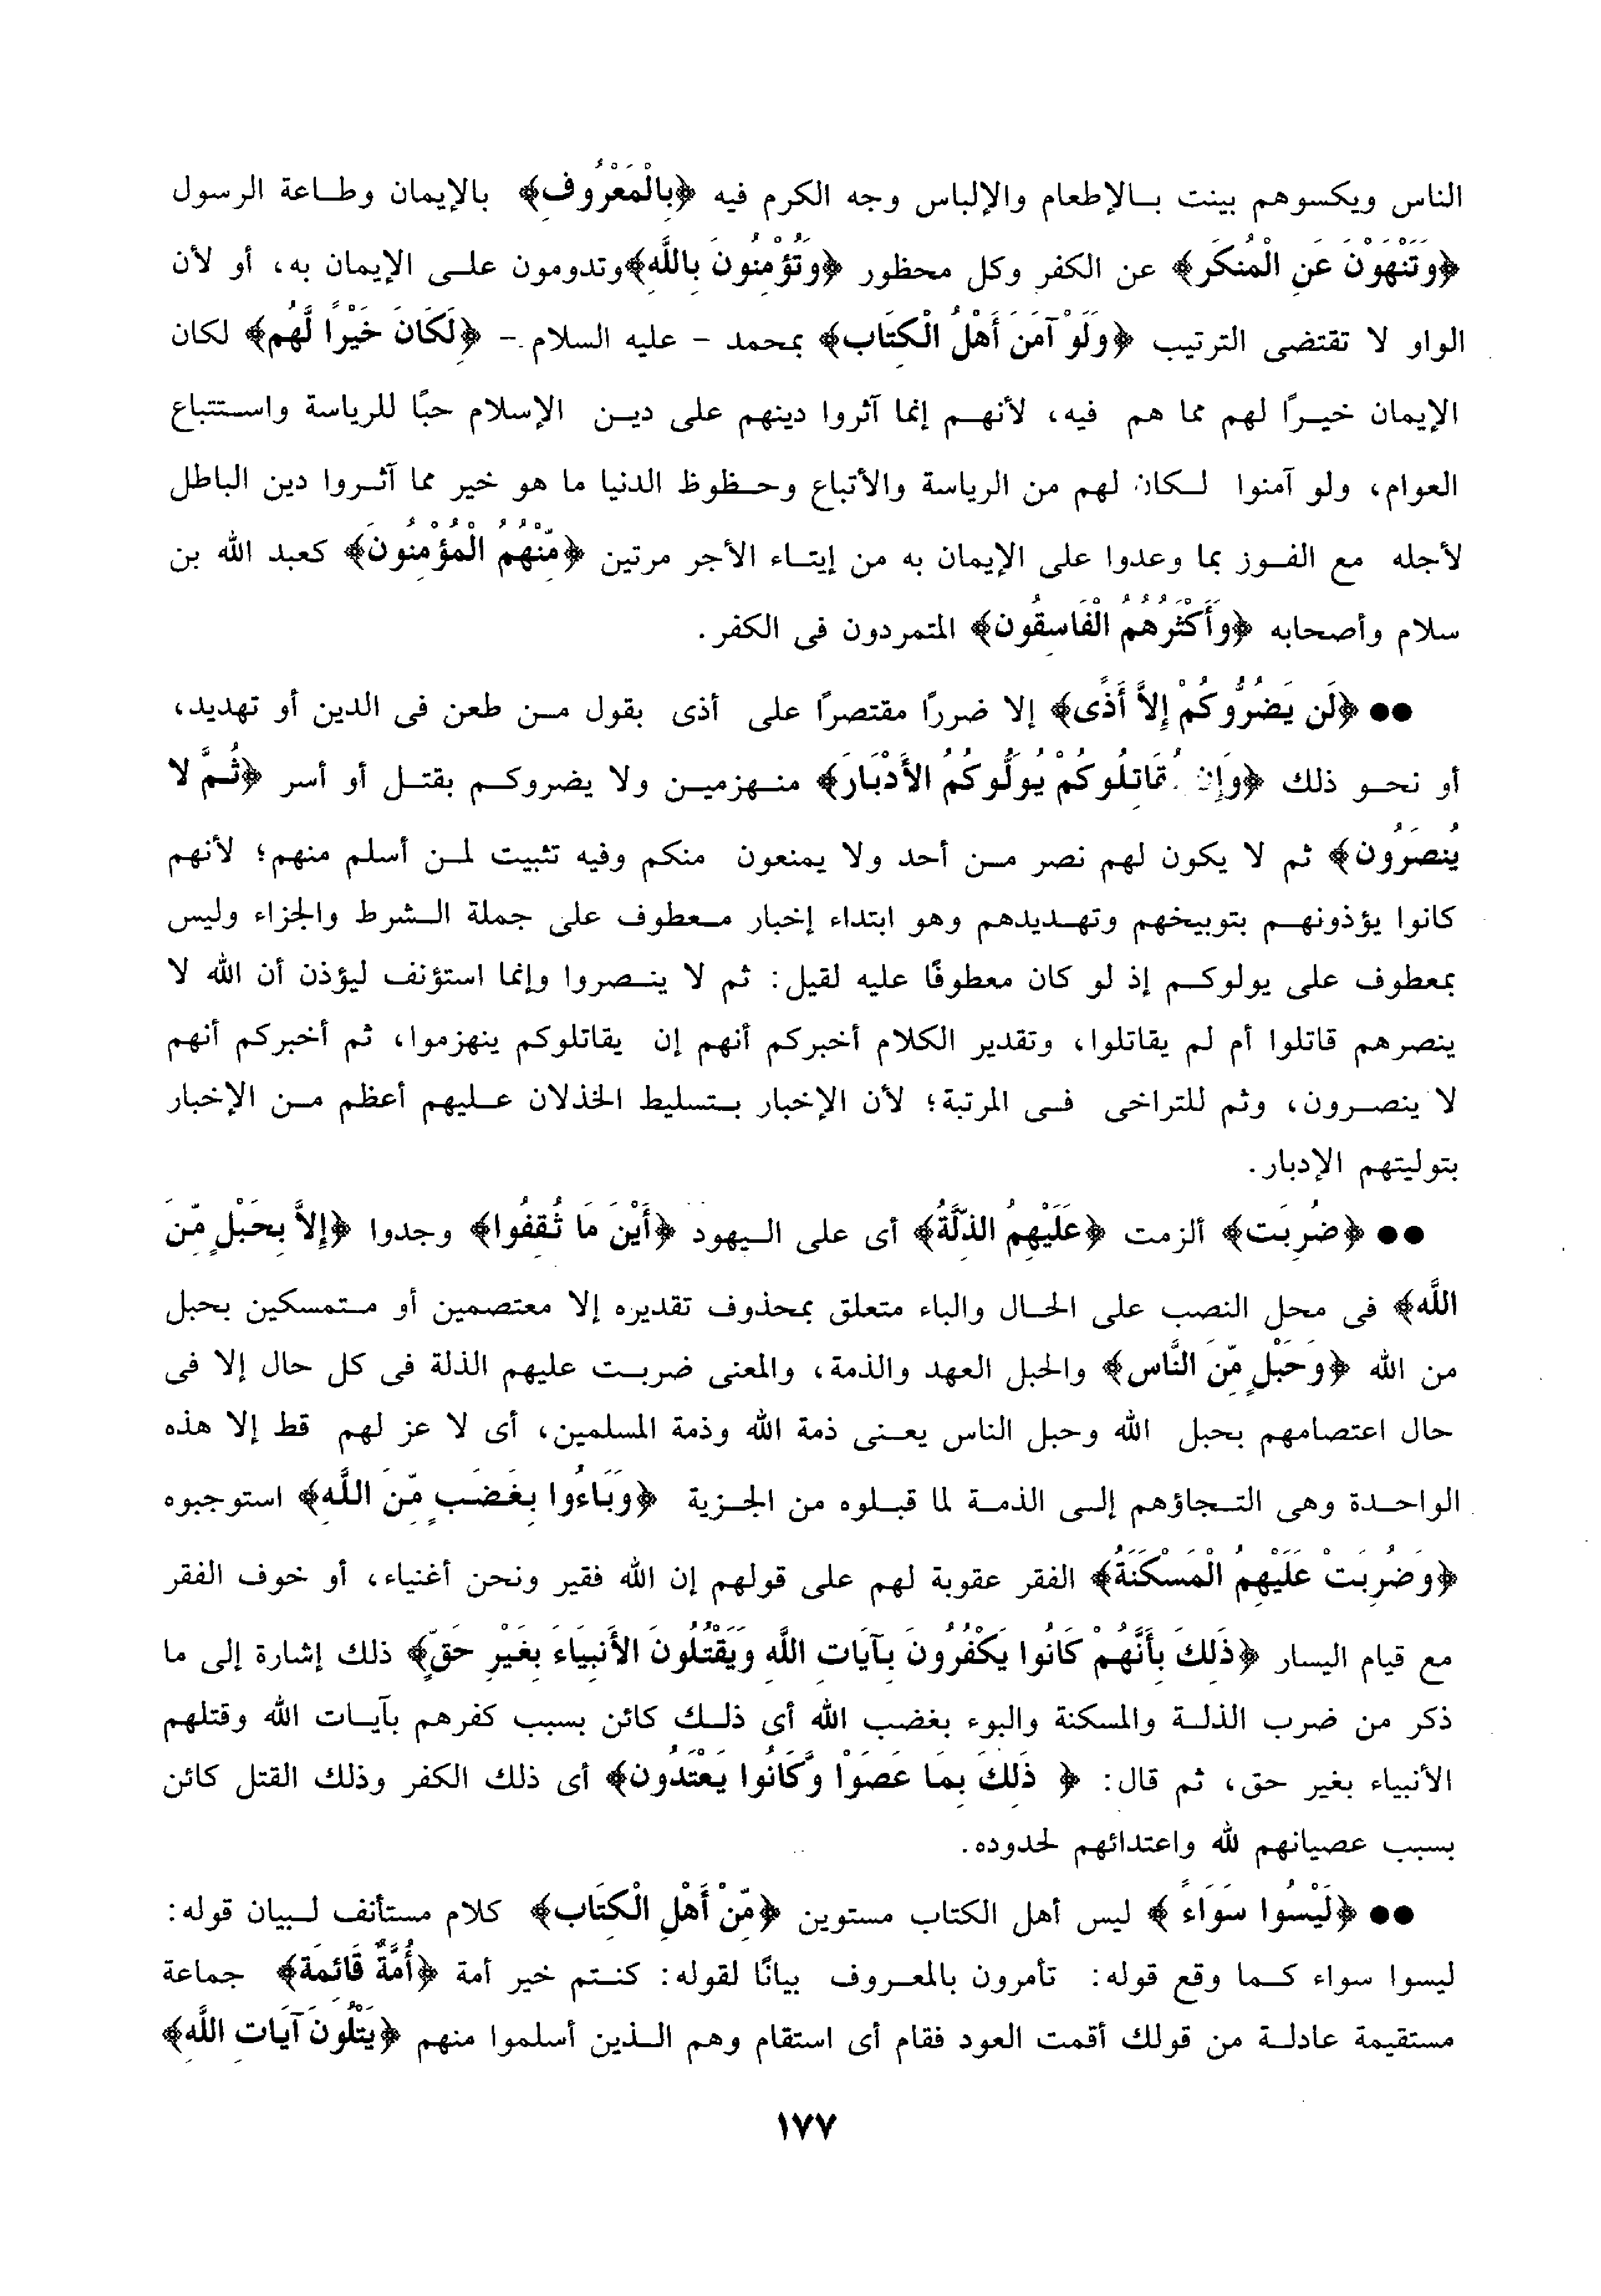 الناس ويكسوهم بينت بالإطعام والإلباس وجه الكرم فيه ﴿بِالْمَعْرُوفِ﴾ بالإيمان وطاعة الرسول
﴿وَتَنْهَوْنَ عَنِ الْمُنكَرِ﴾ عن الكفر وكل محظور ﴿وَتُؤْمِنُونَ بِاللَّهِ﴾وتدومون على الإيمان به، أو لأن
الواو لا تقتضى الترتيب ﴿وَلَوْ آمَنَ أَهْلُ الْكِتَابِ﴾ بمحمد - عليه السلام - ﴿لَكَانَ خَيْرًا لَّهُم﴾ لكان
الإيمان خيرًا لهم مما هم فيه، لأنهم إنما آثروا دينهم على دين الإسلام حبًا للرياسة واستتباع
العوام، ولو آمنوا لكان لهم من الرياسة والأتباع وحظوظ الدنيا ما هو خير مما آثروا دين الباطل
لأجله مع الفوز بما وعدوا على الإيمان به من إيتاء الأجر مرتين ﴿مِّنْهُمُ الْمُؤْمِنُونَ﴾ كعبد الله بن
سلام وأصحابه ﴿وَأَكْثَرُهُمُ الْفَاسِقُون﴾ المتمردون فى الكفر.
●● ﴿لَن يَضُرُّوكُمْ إِلاَّ أَذًى﴾ إلا ضررًا مقتصرًا على أذى بقول من طعن فى الدين أو تهديد،
أو نحو ذلك ﴿وَإِن يُقَاتِلُوكُمْ يُوَلُّوكُمُ الأَدْبَارَ﴾ منهزمين ولا يضروكم بقتل أو أسر ﴿ثُمَّ لا
يُنصَرُون﴾ ثم لا يكون لهم نصر من أحد ولا يمنعون منكم وفيه تثبيت لمن أسلم منهم؛ لأنهم
كانوا يؤذونهم بتوبيخهم وتهديدهم وهو ابتداء إخبار معطوف على جملة الشرط والجزاء وليس
بمعطوف على يولوكم إذ لو كان معطوفًا عليه لقيل: ثم لا ينصروا وإنما استؤنف ليؤذن أن الله لا
ينصرهم قاتلوا أم لم يقاتلوا، وتقدير الكلام أخبركم أنهم إن يقاتلوكم ينهزموا، ثم أخبركم أنهم
لا ينصرون، وثم للتراخى فى المرتبة؛ لأن الإخبار بتسليط الخذلان عليهم أعظم من الإخبار
بتوليتهم الإدبار.
●● ﴿ضُرِبَت﴾ ألزمت ﴿عَلَيْهِمُ الذِّلَّةُ﴾ أى على اليهود ﴿أَيْنَ مَا ثُقِفُوا﴾ وجدوا ﴿إِلاَّ بِحَبْلٍ مِّنَ
اللَّه﴾ فى محل النصب على الحال والباء متعلق بمحذوف تقديره إلا معتصمين أو متمسكين بحبل
من الله ﴿وَحَبْلٍ مِّنَ النَّاسِ﴾ والحبل العهد والذمة، والمعنى ضربت عليهم الذلة فى كل حال إلا فى
حال اعتصامهم بحبل الله وحبل الناس يعنى ذمة الله وذمة المسلمين، أى لا عز لهم قط إلا هذه
الواحدة وهى التجاؤهم إلى الذمة لما قبلوه من الجزية ﴿وَبَاءُوا بِغَضَبٍ مِّنَ اللَّهِ﴾ استوجبوه
﴿وَضُرِبَتْ عَلَيْهِمُ الْمَسْكَنَةُ﴾ الفقر عقوبة لهم على قولهم إن الله فقير ونحن أغنياء، أو خوف الفقر
مع قيام اليسار ﴿ذَلِكَ بِأَنَّهُمْ كَانُوا يَكْفُرُونَ بِآيَاتِ اللَّهِ وَيَقْتُلُونَ الأَنبِيَاءَ بِغَيْرِ حَقٍّ﴾ ذلك إشارة إلى ما
ذكر من ضرب الذلة والمسكنة والبوء بغضب الله أى ذلك كائن بسبب كفرهم بآيات الله وقتلهم
الأنبياء بغير حق، ثم قال: ﴿ ذَلِكَ بِمَا عَصَوْا وَّكَانُوا يَعْتَدُون﴾ أى ذلك الكفر وذلك القتل كائن
بسبب عصيانهم لله واعتدائهم لحدوده.
●● ﴿لَيْسُوا سَوَاءً ﴾ ليس أهل الكتاب مستوين ﴿مِّنْ أَهْلِ الْكِتَابِ﴾ كلام مستأنف لبيان قوله:
ليسوا سواء كما وقع قوله: تأمرون بالمعروف بيانًا لقوله: كنتم خير أمة ﴿أُمَّةٌ قَائِمَة﴾ جماعة
مستقيمة عادلة من قولك أقمت العود فقام أى استقام وهم الذين أسلموا منهم ﴿يَتْلُونَ آيَاتِ اللَّهِ﴾
١٧٧